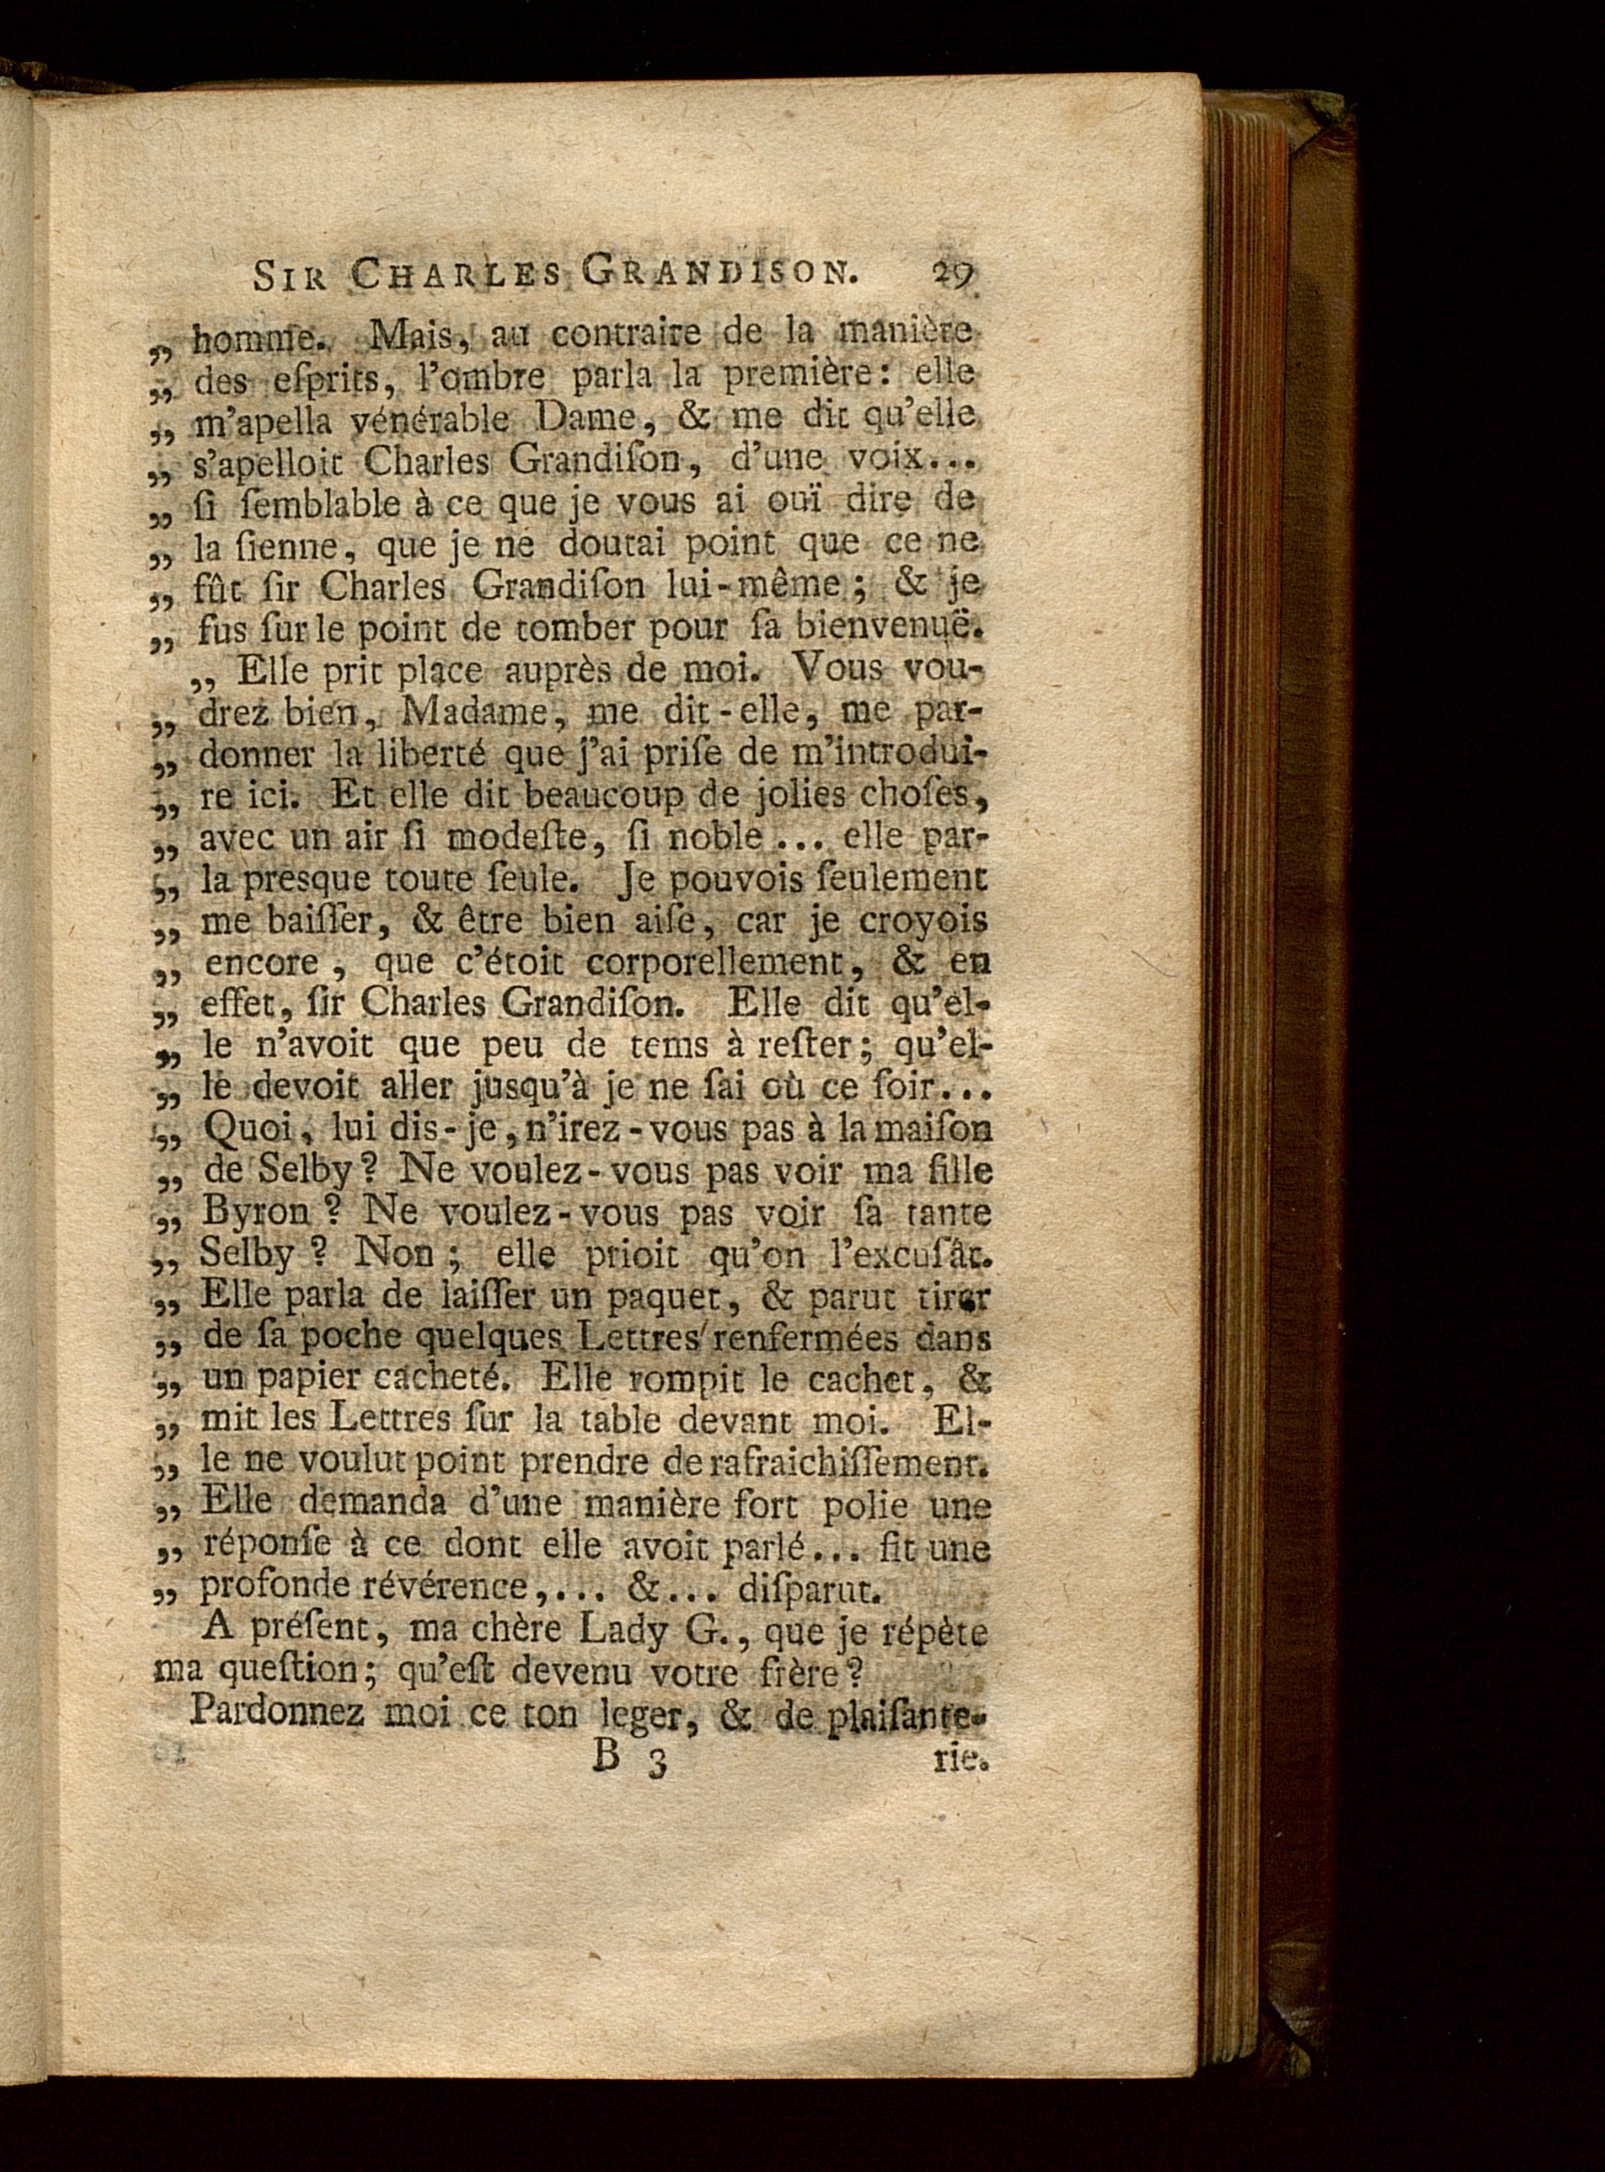 SIR CHARLES GRANDISON. 29
„ homme. Mais, au contraire de la manière
„ des eſprits, l'ombre parla la première: elle
„ m'apella vénérable Dame, & me dit qu'elle
„ s'apelloit Charles Grandiſon, d'une voix...
„ ſi ſemblable à ce que je vous ai ouï dire de
„ la ſienne, que je ne doutai point que ce ne
„ fût ſir Charles Grandiſon lui-même; & je
„ fus ſur le point de tomber pour ſa bienvenuë.
„ Elle prit place auprès de moi. Vous vou-
„ drez bien, Madame, me dit-elle, me par-
„ donner la liberté que j'ai priſe de m'introdui-
„ re ici. Et elle dit beaucoup de jolies choſes,
„ avec un air ſi modeſte, ſi noble... elle par-
„ la presque toute ſeule. Je pouvois ſeulement
„ me baiſſer, & être bien aiſe, car je croyois
„ encore, que c'étoit corporellement, & en
„ effet, ſir Charles Grandiſon. Elle dit qu'el-
„ le n'avoit que peu de tems à reſter; qu'el-
„ le devoit aller jusqu'à je ne ſai où ce ſoir...
„ Quoi, lui dis-je, n'irez-vous pas à la maiſon
„ de Selby? Ne voulez-vous pas voir ma fille
„ Byron? Ne voulez-vous pas voir ſa tante
„ Selby? Non; elle prioit qu'on l'excuſât.
„ Elle parla de laiſſer un paquet, & parut tirer
„ de ſa poche quelques Lettres renfermées dans
„ un papier cacheté. Elle rompit le cachet, &
„ mit les Lettres ſur la table devant moi. El-
„ le ne voulut point prendre de rafraichiſſement.
„ Elle demanda d'une manière fort polie une
„ réponſe à ce dont elle avoit parlé... fit une
„ profonde révérence,... &... diſparut.
A préſent, ma chère Lady G., que je répète
ma queſtion; qu'eſt devenu votre frère?
Pardonnez moi ce ton leger, & de plaiſante-
B 3 rie.